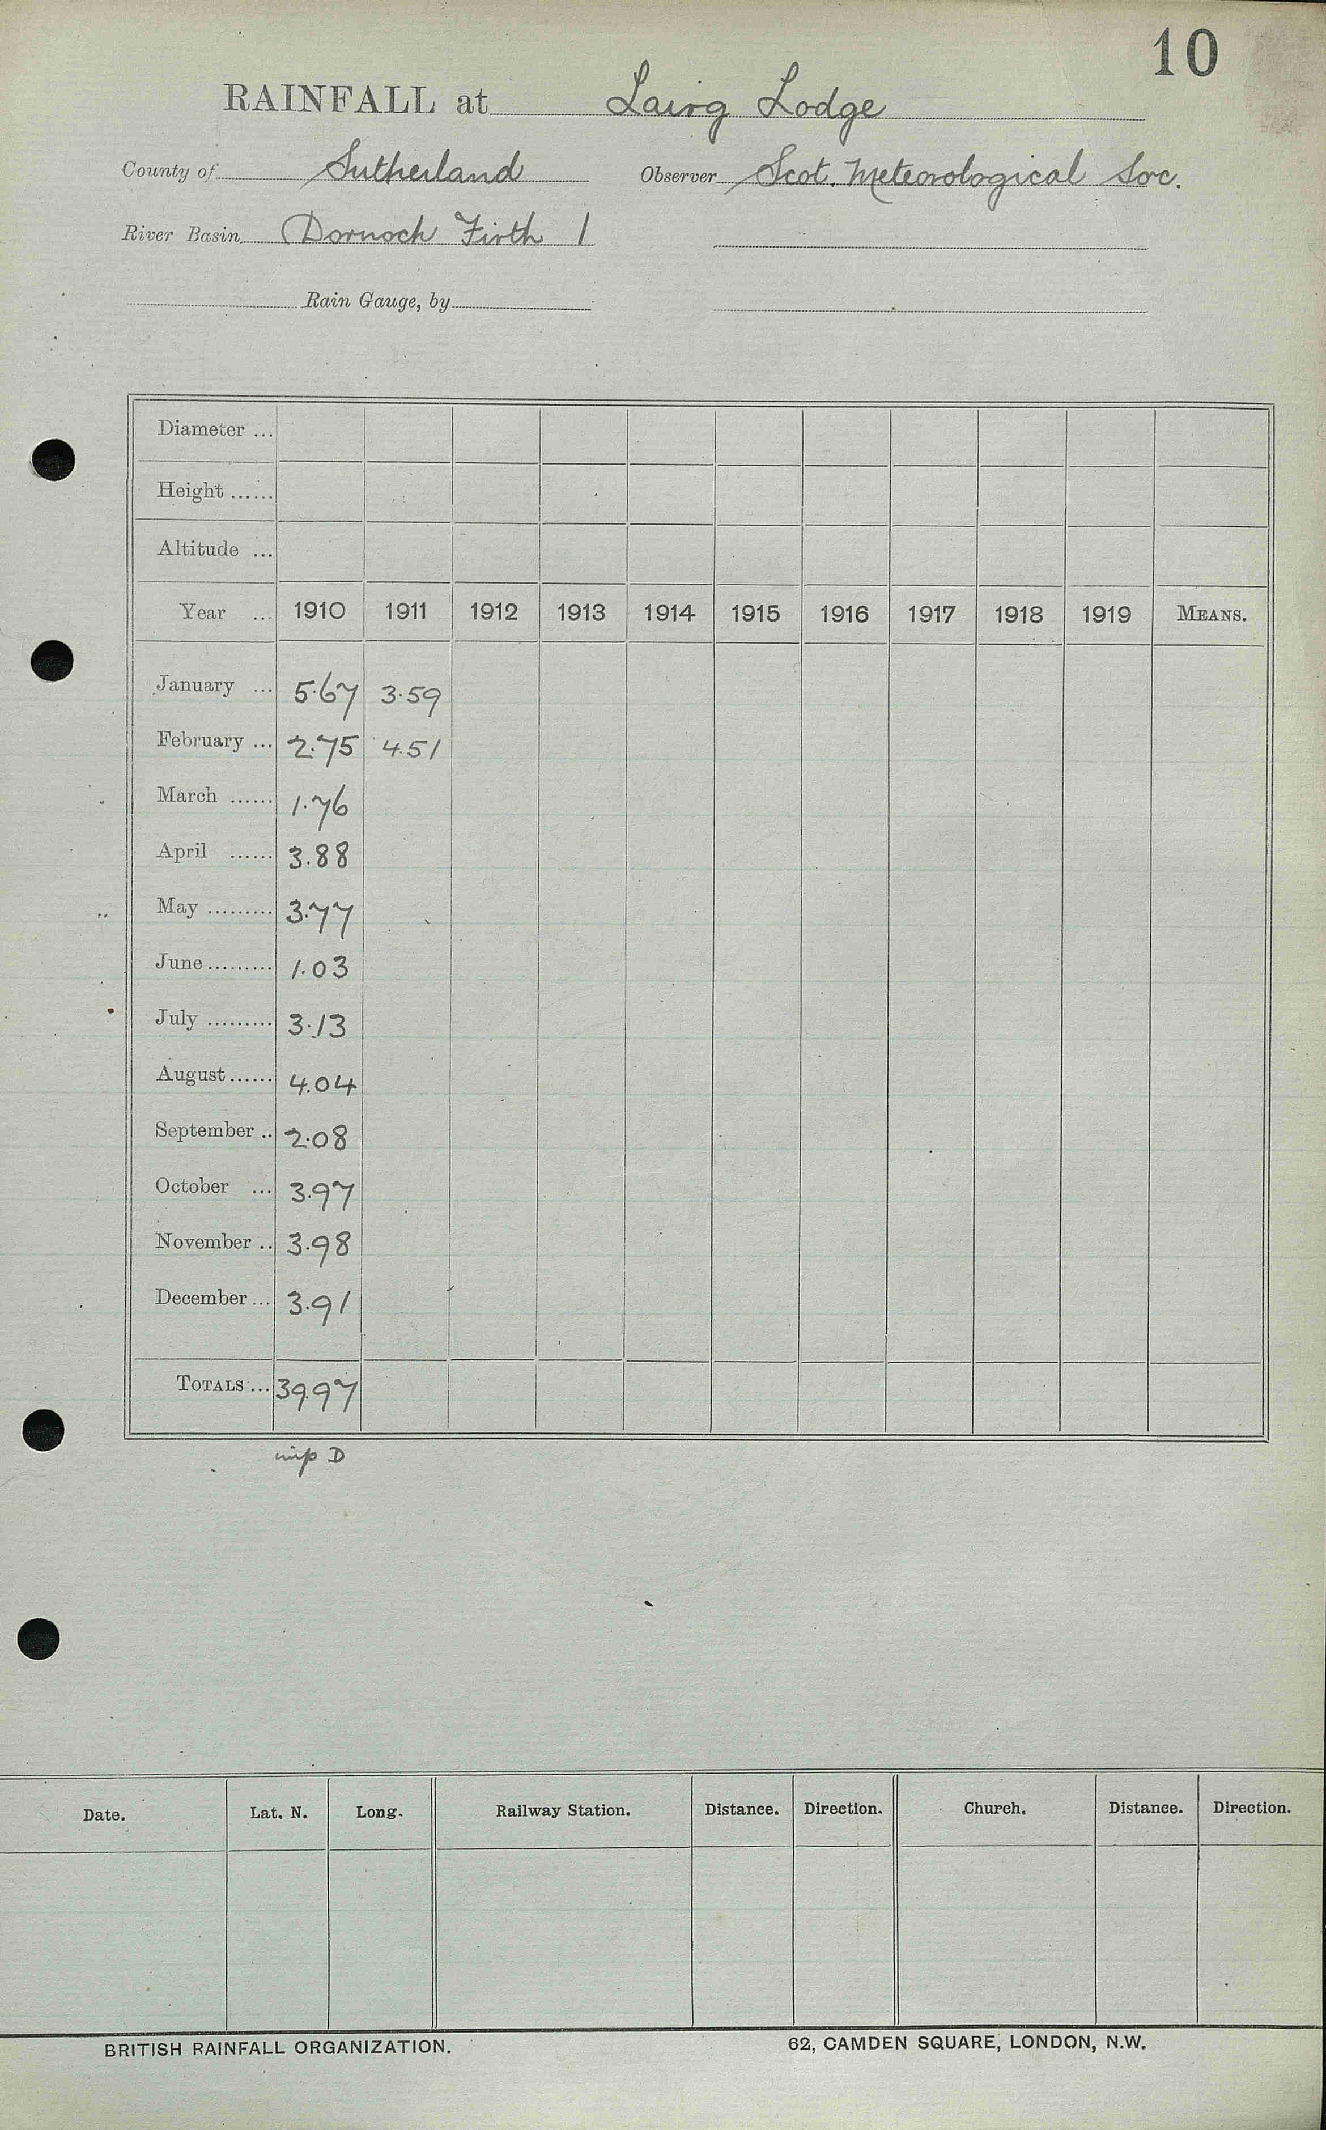 10
RAINFALL at Lairg Lodge
County of Sutherland Observer Scot. Meteorological Soc.
River Basin Dornoch Firth 1
Rain Gauge, by
Diameter ...
Height ......
Altitude ...
Year ... 1910 1911 1912 1913 1914 1915 1916 1917 1918 1919 MEANS.
January ... 5.67 3.59
February ... 2.75 4.51
March ...... 1.76
April ...... 3.88
May ......... 3.77
June ......... 1.03
July ......... 3.13
August ...... 4.04
September .. 2.08
October ... 3.97
November .. 3.98
December ... 3.91
TOTALS ... 39.97
D
Date. Lat. N. Long. Railway Station. Distance. Direction. Church. Distance. Direction.
BRITISH RAINFALL ORGANIZATION. 62, CAMDEN SQUARE, LONDON, N.W.